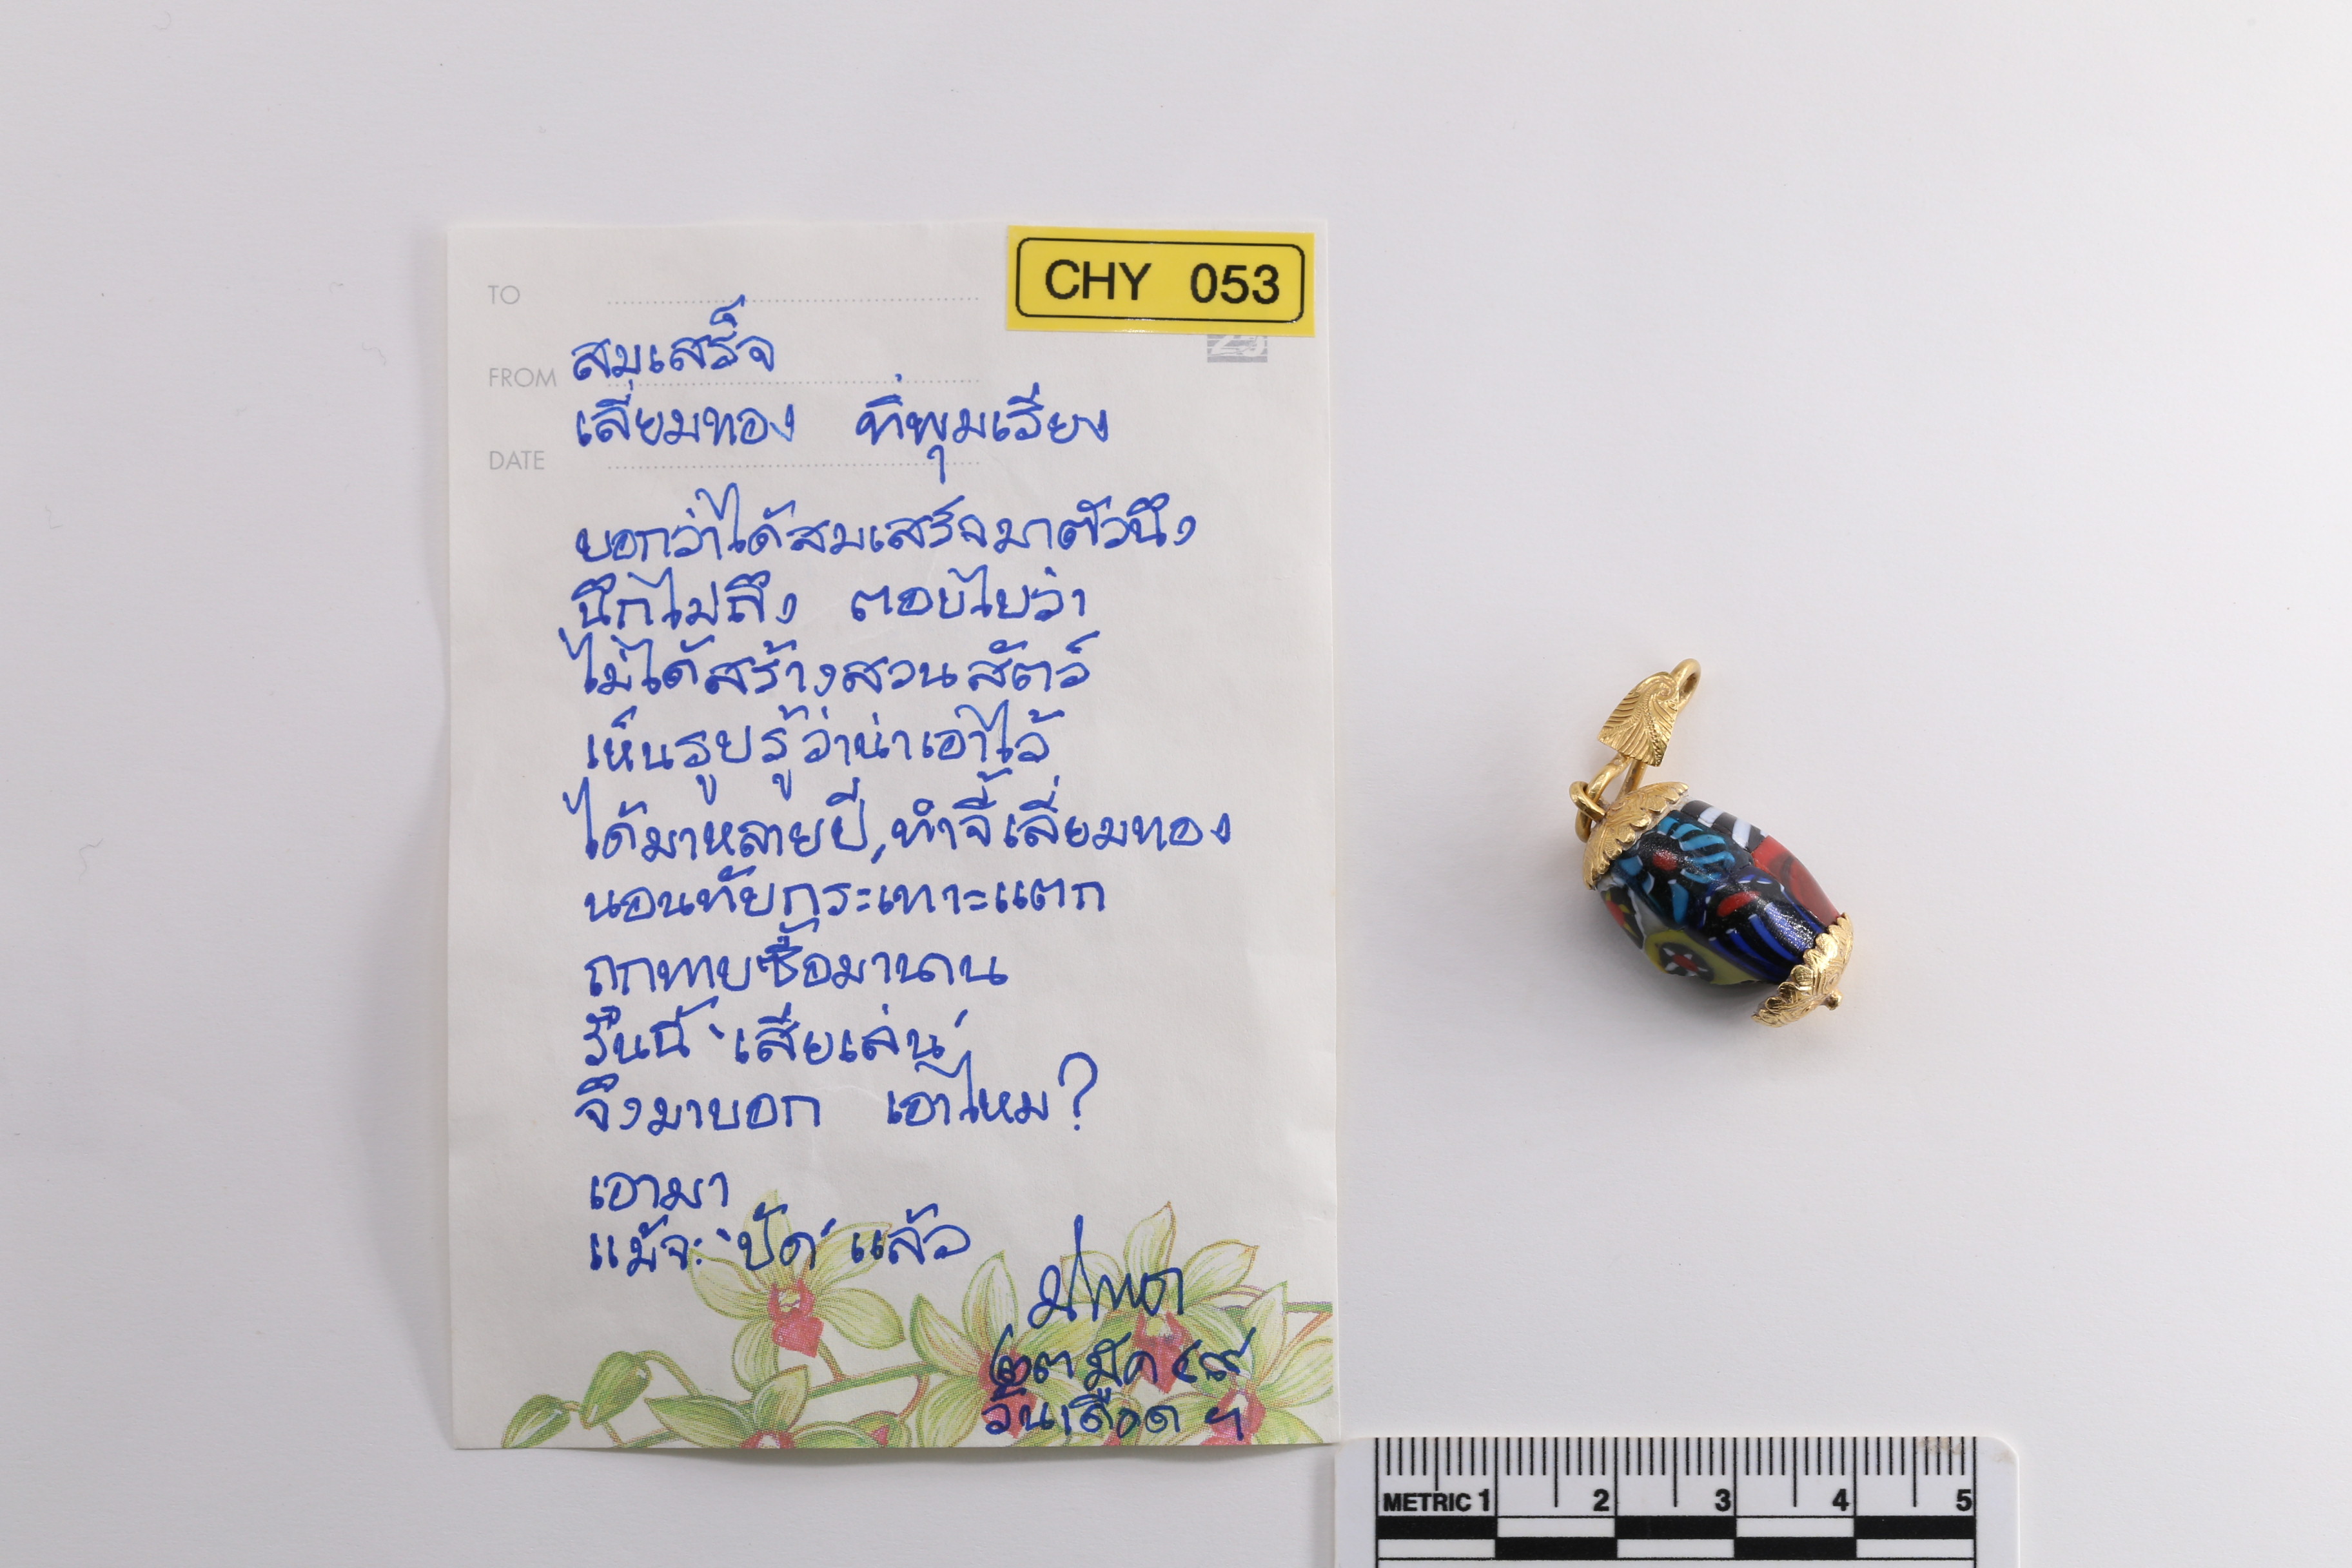 CHY 053
TO
สมเสร็จ
FROM
เลี่ยมทอง ที่พุมเรียง
DATE
บอกว่าได้สมเสร็จมาตัวนึง
นึกไม่ถึง ตอบไปว่า
ไม่ได้สร้างสวนสัตว์
เห็นรูปรู้ว่าน่าเอาไว้
ได้มาหลายปี, ทำจี้เลี่ยมทอง
นอนทับกระเทาะแตก
ถูกทาบซื้อมานาน
วันนี้ 'เสี่ยเล่น'
จึงมาบอก เอาไหม?
เอามา
แม้จะ 'ปัด' แล้ว
๒๓ มีค ๔๙
วันเดือด ๆ
METRIC 1 2 3 4 5